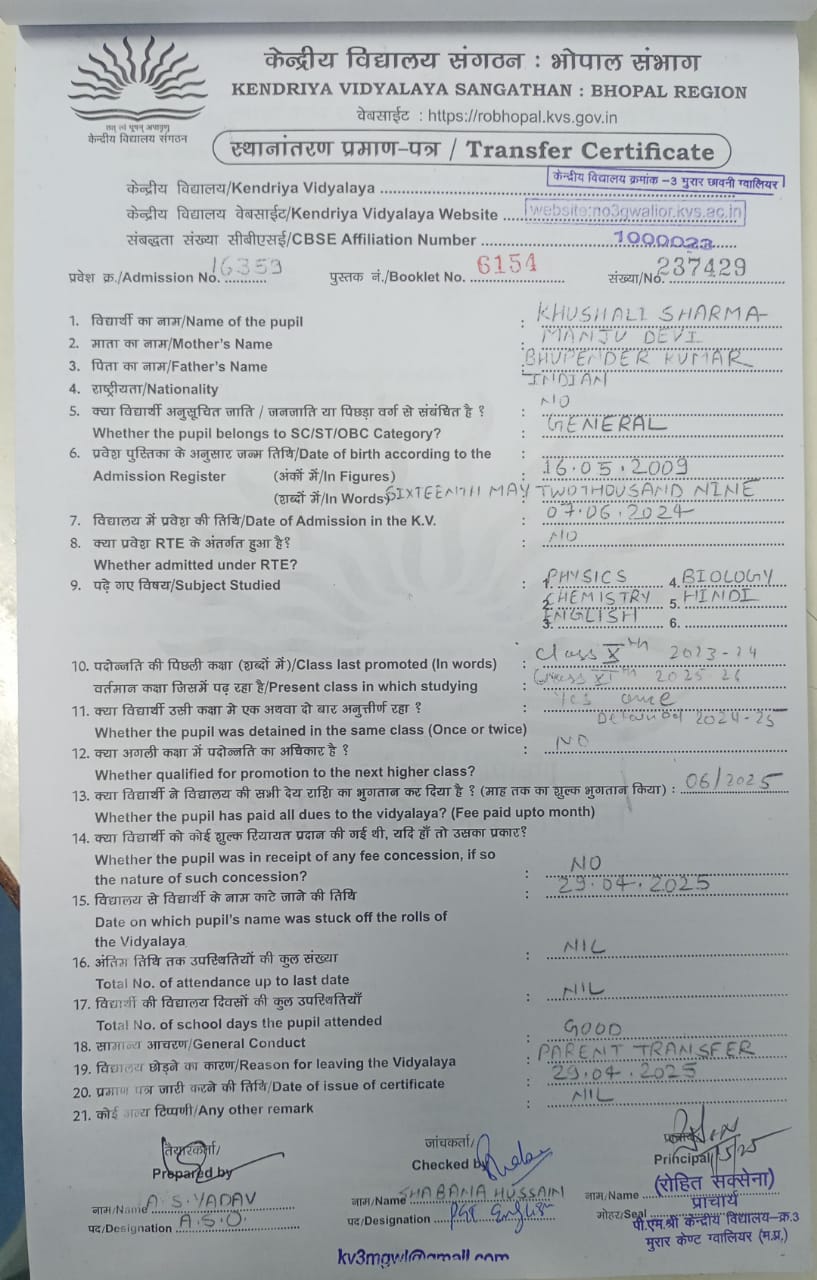 केन्द्रीय विद्यालय संगठन : भोपाल संभाग
KENDRIYA VIDYALAYA SANGATHAN : BHOPAL REGION
वेबसाईट : https://robhopal.kvs.gov.in
केन्द्रीय विद्यालय संगठन
स्थानांतरण प्रमाण-पत्र / Transfer Certificate
केन्द्रीय विद्यालय/Kendriya Vidyalaya केन्द्रीय विद्यालय क्रमांक -3 मुरार छावनी ग्वालियर
केन्द्रीय विद्यालय वेबसाईट/Kendriya Vidyalaya Website website:no3gwalior.kvs.ac.in
संबद्धता संख्या सीबीएसई/CBSE Affiliation Number 1000023
प्रवेश क्र./Admission No. 16359 पुस्तक नं./Booklet No. 6154 संख्या/No. 237429
1. विद्यार्थी का नाम/Name of the pupil : KHUSHALI SHARMA
2. माता का नाम/Mother's Name : MANJU DEVI
3. पिता का नाम/Father's Name : BHUPENDER KUMAR
4. राष्ट्रीयता/Nationality : INDIAN
5. क्या विद्यार्थी अनुसूचित जाति / जनजाति या पिछड़ा वर्ग से संबंधित है ? : NO
Whether the pupil belongs to SC/ST/OBC Category? : GENERAL
6. प्रवेश पुस्तिका के अनुसार जन्म तिथि/Date of birth according to the
Admission Register (अंकों में/In Figures) : 16.05.2009
(शब्दों में/In Words) SIXTEENTH MAY TWO THOUSAND NINE
7. विद्यालय में प्रवेश की तिथि/Date of Admission in the K.V. : 07.06.2024
8. क्या प्रवेश RTE के अंतर्गत हुआ है? : NO
Whether admitted under RTE?
9. पढ़े गए विषय/Subject Studied : 1. PHYSICS 4. BIOLOGY
2. CHEMISTRY 5. HINDI
3. ENGLISH 6.
10. पदोन्नति की पिछली कक्षा (शब्दों में)/Class last promoted (In words) : Class Xth 2023-24
वर्तमान कक्षा जिसमें पढ़ रहा है/Present class in which studying : Class XIth 2025-26
11. क्या विद्यार्थी उसी कक्षा मे एक अथवा दो बार अनुत्तीर्ण रहा ? : Yes once
Whether the pupil was detained in the same class (Once or twice) Detained 2024-25
12. क्या अगली कक्षा में पदोन्नति का अधिकार है ? : NO
Whether qualified for promotion to the next higher class?
13. क्या विद्यार्थी ने विद्यालय की सभी देय राशि का भुगतान कर दिया है ? (माह तक का शुल्क भुगतान किया) : 06/2025
Whether the pupil has paid all dues to the vidyalaya? (Fee paid upto month)
14. क्या विद्यार्थी को कोई शुल्क रियायत प्रदान की गई थी, यदि हाँ तो उसका प्रकार?
Whether the pupil was in receipt of any fee concession, if so
the nature of such concession? : NO
15. विद्यालय से विद्यार्थी के नाम काटे जाने की तिथि : 29.04.2025
Date on which pupil's name was stuck off the rolls of
the Vidyalaya
16. अंतिम तिथि तक उपस्थितियों की कुल संख्या : NIL
Total No. of attendance up to last date
17. विद्यार्थी की विद्यालय दिवसों की कुल उपस्थितियाँ : NIL
Total No. of school days the pupil attended
18. सामान्य आचरण/General Conduct : GOOD
19. विद्यालय छोड़ने का कारण/Reason for leaving the Vidyalaya : PARENT TRANSFER
20. प्रमाण पत्र जारी करने की तिथि/Date of issue of certificate : 29.04.2025
21. कोई अन्य टिप्पणी/Any other remark : NIL
तैयारकर्ता/ जांचकर्ता/
Prepared by Checked by Principal
नाम/Name A.S. YADAV नाम/Name SHABANA HUSSAIN नाम/Name (रोहित सक्सेना)
पद/Designation A.S.O. पद/Designation PGT English मोहर/Seal प्राचार्य
पी.एम.श्री केन्द्रीय विद्यालय-क्र.3
मुरार केण्ट ग्वालियर (म.प्र.)